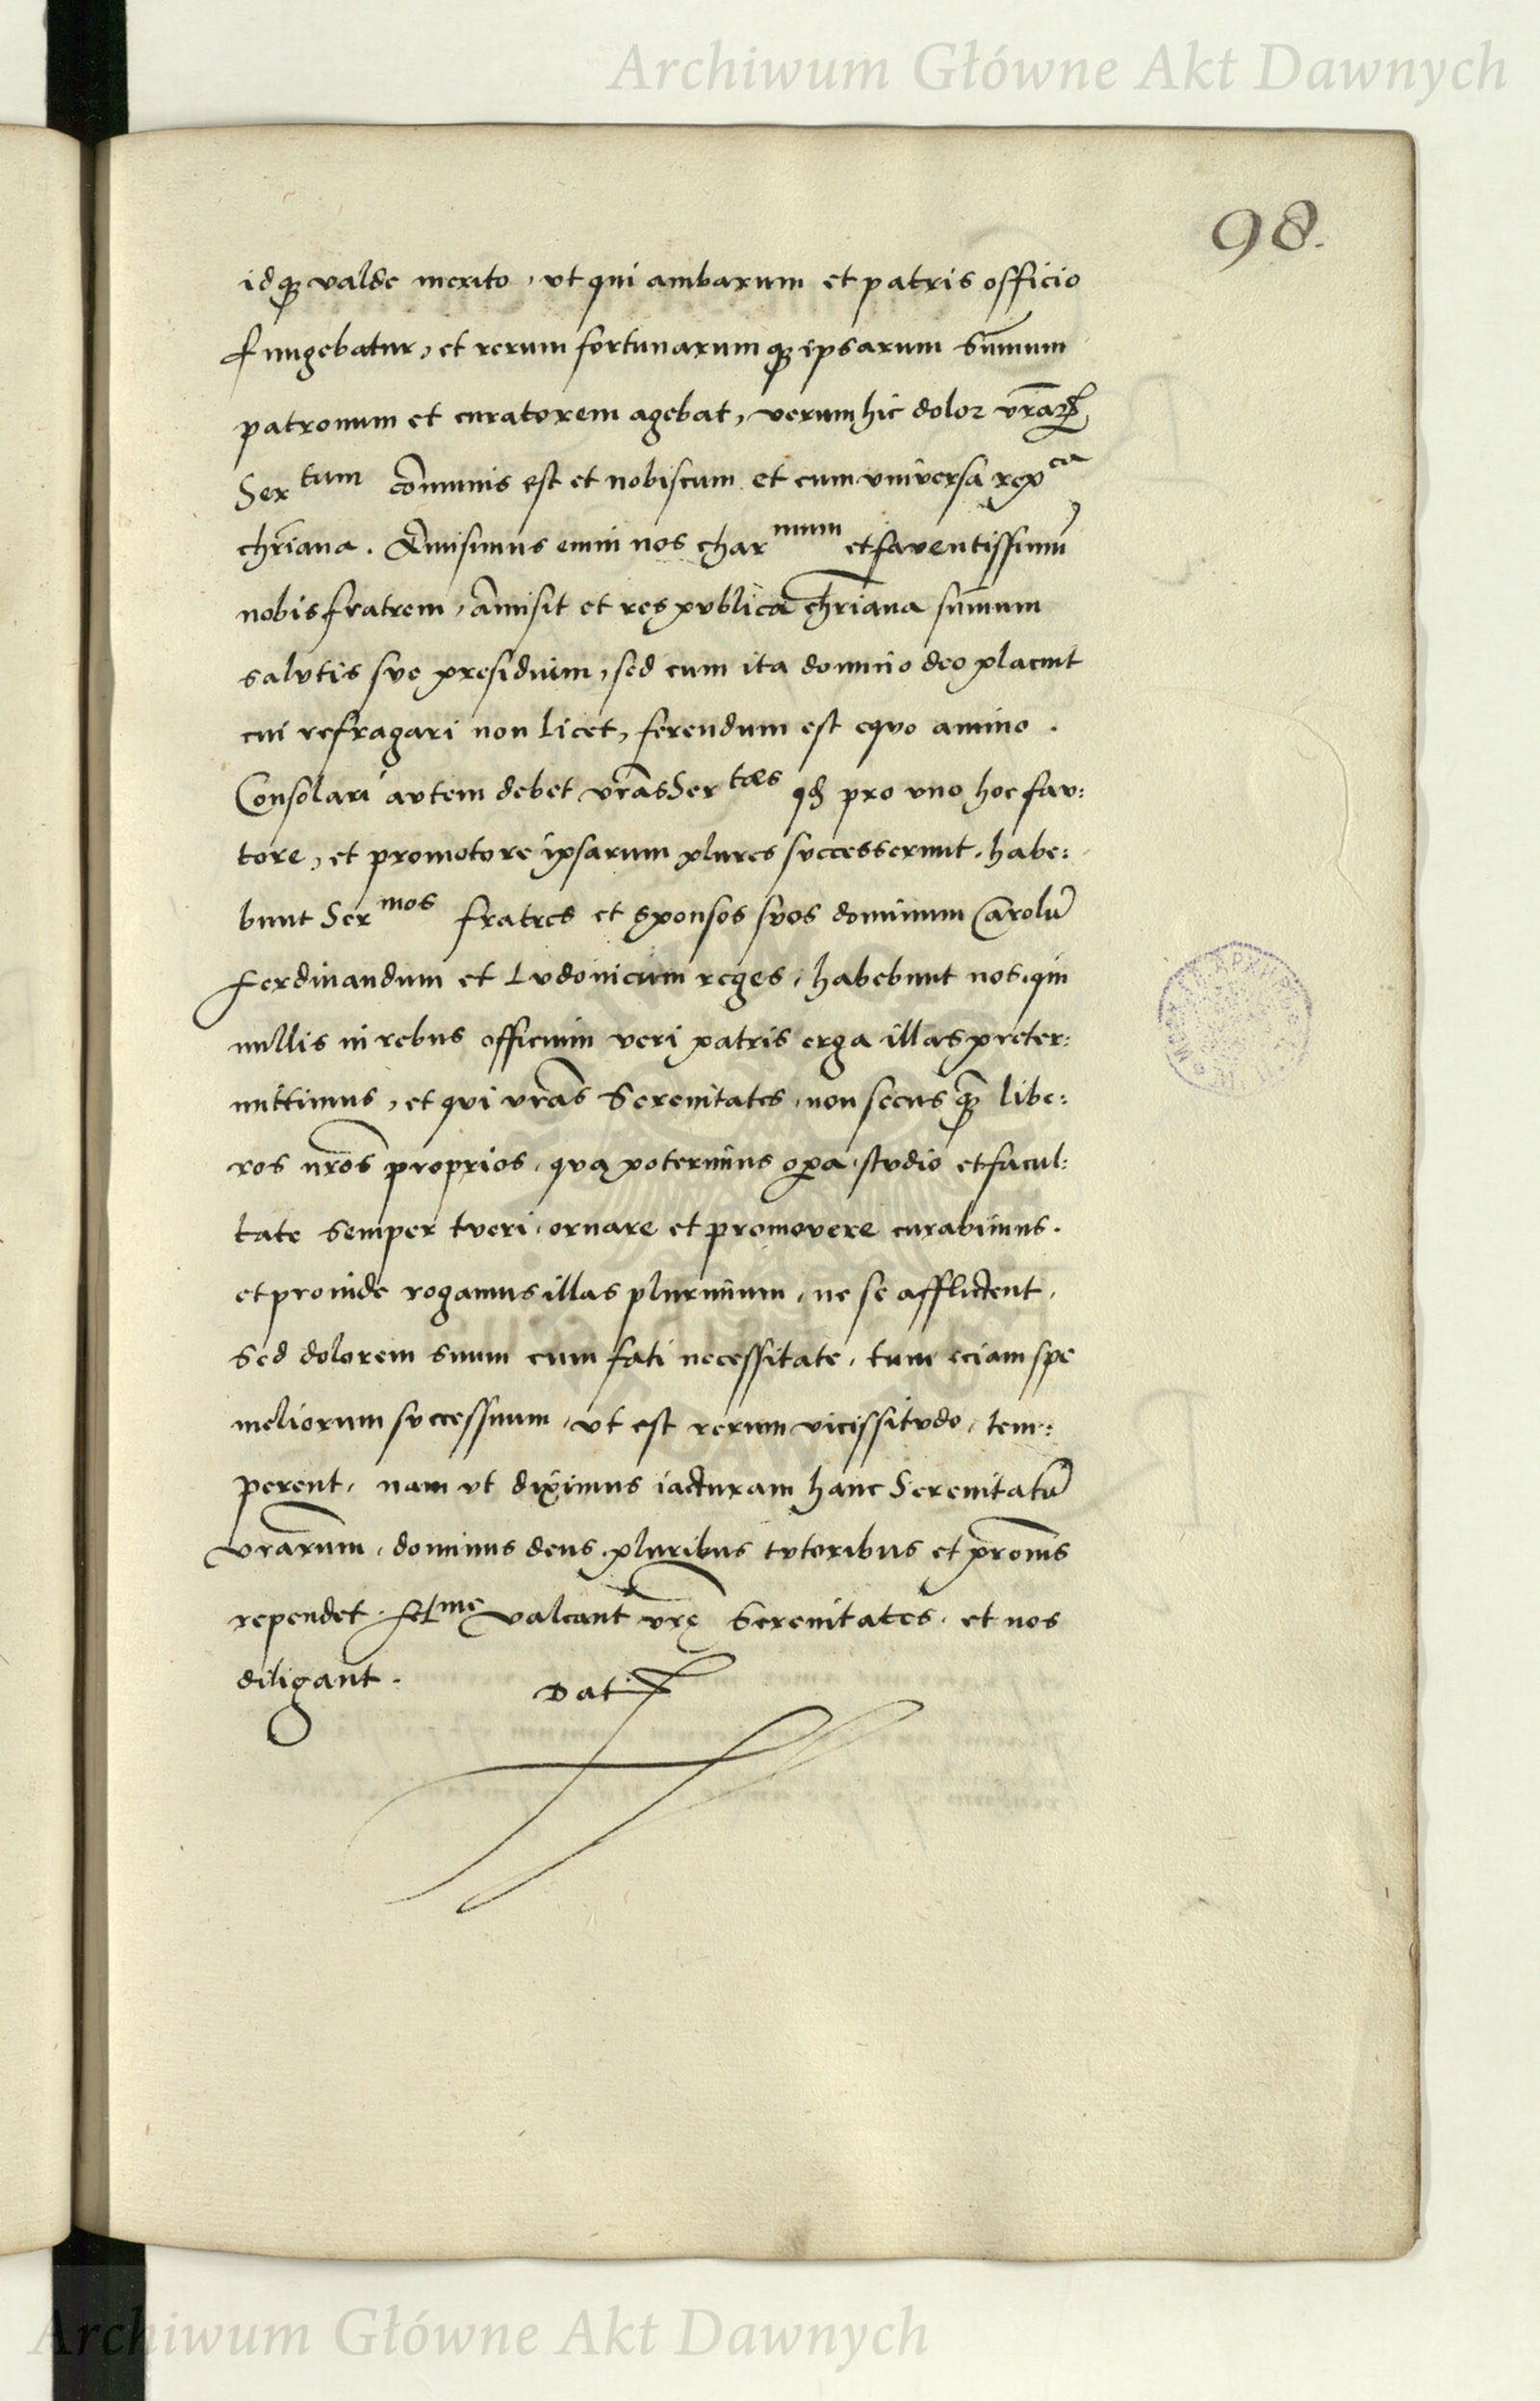 Archiwum Główne Akt Dawnych
98.
idq3 valde merito, vt qui ambarum et patris officio
fungebatur, et rerum fortunarumq3 ipsarum sum̄um
patronum et curatorem agebat, verum hic dolor vr̄aꝝ
Sertum com̄unis est et nobiscum et cum vniversa repca
chr̄iana. Amisimus enim nos charmum et faventissimū
nobis fratrem, amisit et respvblica chr̄iana sum̄um
salvtis sve presidium, sed cum ita domino deo placuit
cui refragari non licet, ferendum est eqvo animo.
Consolari avtem debet vr̄as Sertes qd pro vno hoc fav:
tore, et promotore ipsarum plures svccesserunt. habe:
bunt Sermos fratres et sponsos svos dominum Carolū
Ferdinandum et Lvdovicum reges, habebunt nos, qui
nullis in rebus officium veri patris erga illas preter:
mittimus, et qvi vr̄as Serenitates, non secus qȝ̄ libe:
ros nr̄os proprios, qva poterimus oꝑa, stvdio et facul:
tate semper tveri, ornare et promovere curabimus.
et proinde rogamus illas plurimum, ne se afflictent,
sed dolorem suum cum fati necessitate, tum eciam spe
meliorum svccessuum, vt est rerum vicissitvdo, tem:
perent, nam vt diximus iacturam hanc Serenitatū
vr̄arum, dominus deus pluribus tvtoribus et pr̄onis
rependet. felme valeant vr̄ę Serenitates. et nos
diligant. Dat.
Archiwum Główne Akt Dawnych